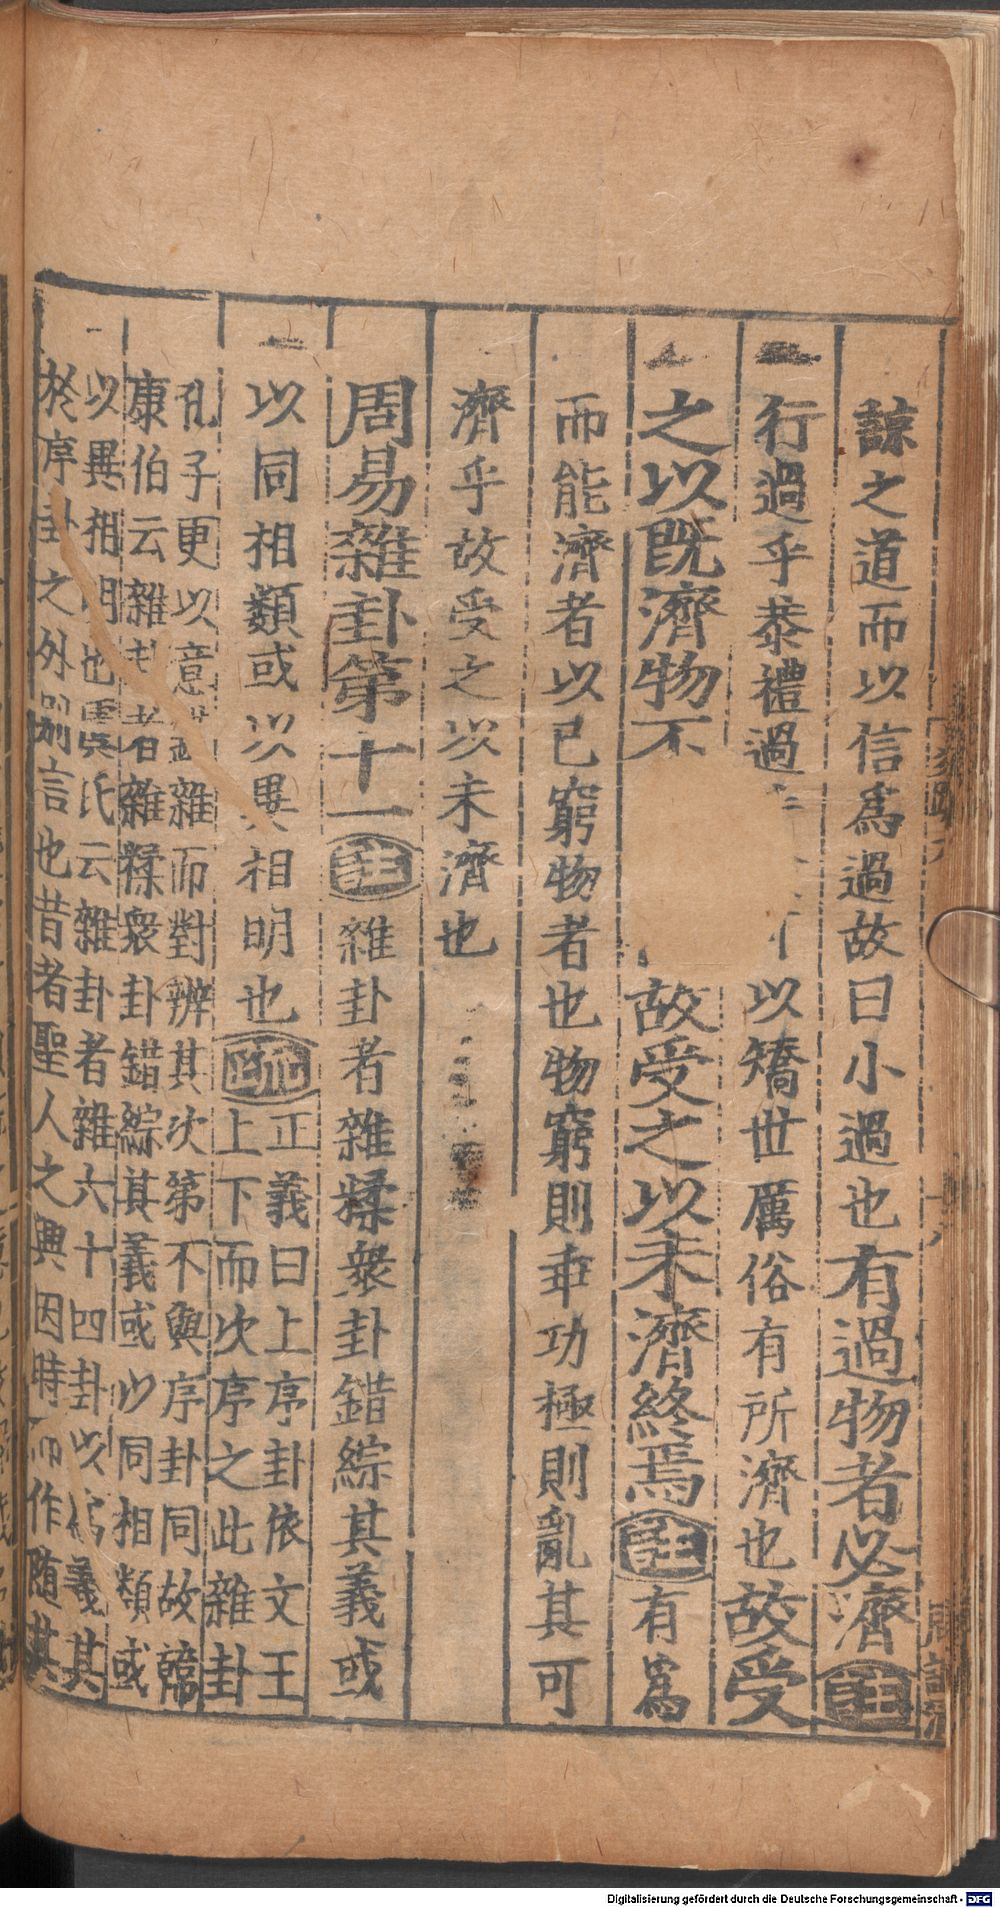 諒之道而以信爲過故曰小過也有過物者必濟註
行過乎恭禮過以矯世厲俗有所濟也故受
之以既濟物不故受之以未濟終焉註有爲
而能濟者以已窮物者也物窮則乖功極則亂其可
濟乎故受之以未濟也
周易雜卦第十一註雜卦者雜糅衆卦錯綜其義或
以同相類或以異相明也疏
正義曰上序卦依文王
上下而次序之此雜卦
孔子更以意雜而對辨其次第不與序卦同故韓
康伯云雜卦者雜糅衆卦錯綜其義或以同相類或
以異相明也虞氏云雜卦者雜六十四卦以爲義其
於序卦之外別言也昔者聖人之興因時而作隨其
Digitalisierung gefördert durch die Deutsche Forschungsgemeinschaft - DFG